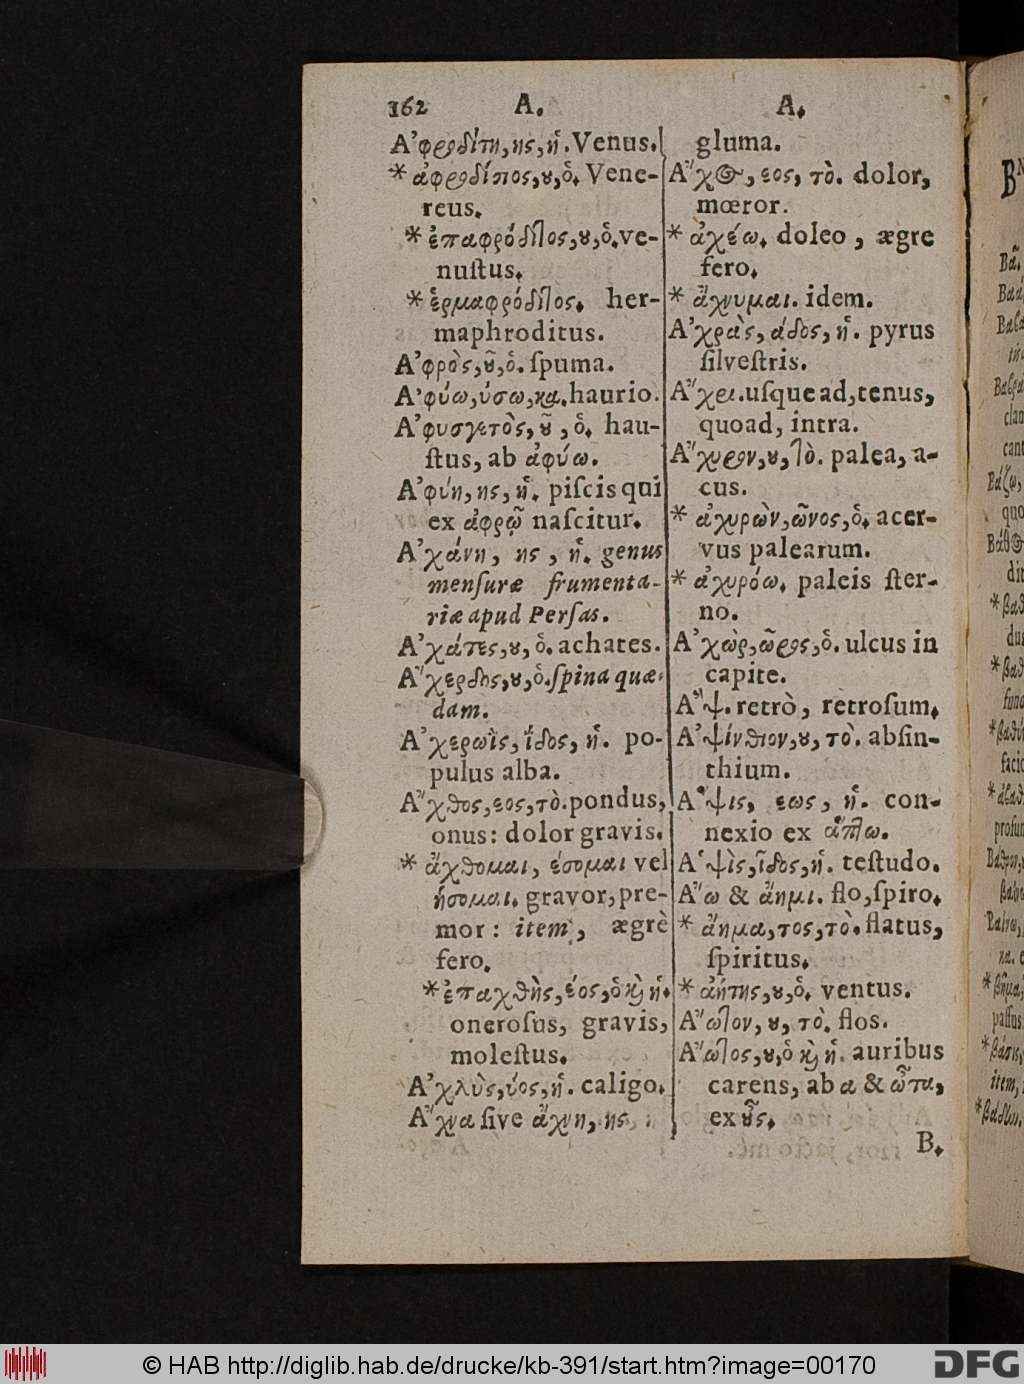 162 A. A.
Ἀφροδίτη, ης, ἡ. Venus.
* ἀφροδίσιος, ȣ, ὁ. Vene-
reus.
* ἐπαφρόδιτος, ȣ, ὁ. ve-
nuſtus.
* ἑρμαφρόδιτος. her-
maphroditus.
Ἀφρὸς, ȣ͂, ὁ. ſpuma.
Ἀφύω, ύσω, κα. haurio.
Ἀφυσγετὸς, ȣ͂, ὁ. hau-
ſtus, ab ἀφύω.
Ἀφύη, ης, ἡ. piſcis qui
ex ἀφρῷ naſcitur.
Ἀχάνη, ης, ἡ. genus
menſuræ frumenta-
riæ apud Perſas.
Ἀχάτες, ȣ, ὁ. achates.
Ἄχερδος, ȣ, ὁ. ſpina quæ-
dam.
Ἀχερωῒς, ΐδος, ἡ. po-
pulus alba.
Ἄχθος, εος, τὸ. pondus,
onus: dolor gravis.
* ἄχθομαι, έσομαι vel
ήσομαι. gravor, pre-
mor: item, ægrè
fero.
* ἐπαχθὴς, έος, ὁ ϗ ἡ.
oneroſus, gravis,
moleſtus.
Ἀχλὺς, ύος, ἡ. caligo.
Ἄχνα ſive ἄχνη, ης,
gluma.
Ἄχος, εος, τὸ. dolor,
mœror.
* ἀχέω. doleo, ægre
fero.
* ἄχνυμαι. idem.
Ἀχρὰς, άδος, ἡ. pyrus
ſilveſtris.
Ἄχρι. uſque ad, tenus,
quoad, intra.
Ἄχυρον, ȣ, τὸ. palea, a-
cus.
* ἀχυρὼν, ῶνος, ὁ. acer-
vus palearum.
* ἀχυρόω. paleis ſter-
no.
Ἀχὼρ, ῶρος, ὁ. ulcus in
capite.
Ἂψ. retrò, retrorſum.
Ἀψίνθιον, ȣ, τὸ. abſin-
thium.
Ἅψις, εως, ἡ. con-
nexio ex ἅπτω.
Ἁψὶς, ῖδος, ἡ. teſtudo.
Ἄω & ἄημι. flo, ſpiro.
* ἄημα, τος, τὸ. flatus,
ſpiritus.
* ἀήτης, ȣ, ὁ. ventus.
Ἄωτον, ȣ, τὸ. flos.
Ἄωτος, ȣ, ὁ ϗ ἡ. auribus
carens, ab α & ὦτα,
ex ȣ̓͂ς.
B.
© HAB http://diglib.hab.de/drucke/kb-391/start.htm?image=00170
DFG